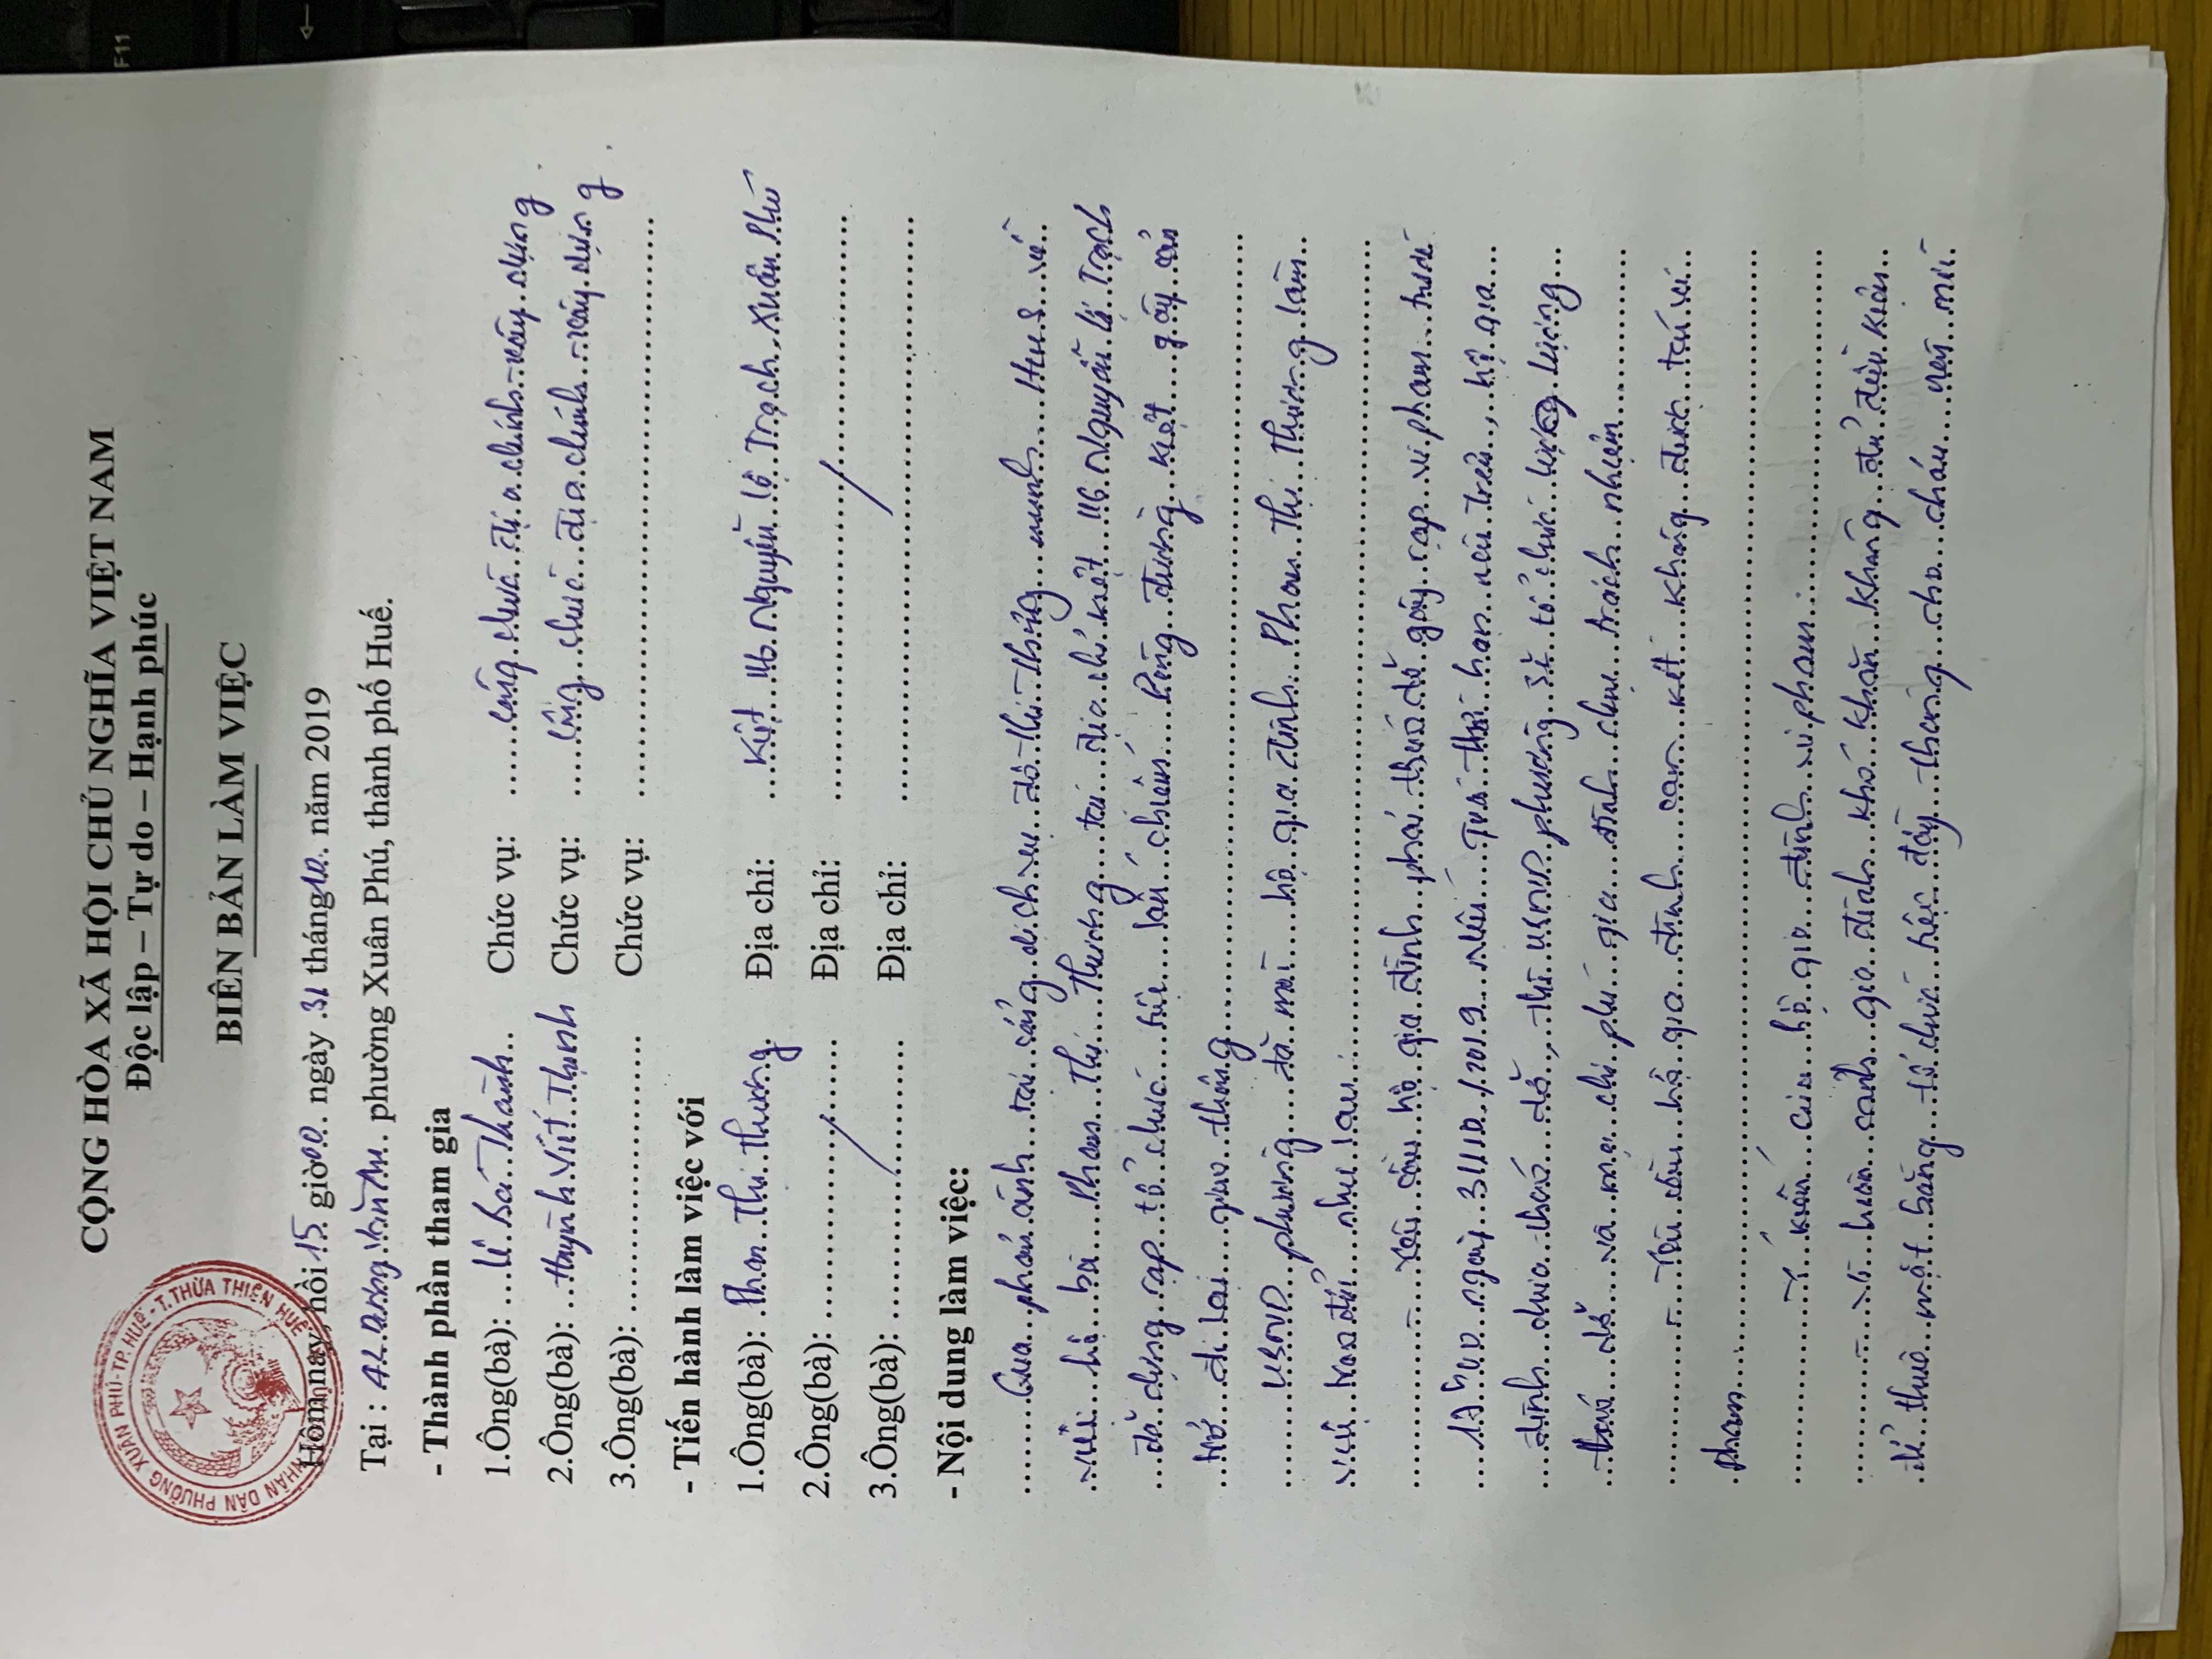 CỘNG HÒA XÃ HỘI CHỦ NGHĨA VIỆT NAM
Độc lập – Tự do – Hạnh phúc
BIÊN BẢN LÀM VIỆC
NHÂN DÂN PHƯỜNG XUÂN PHÚ-TP.HUẾ-T.THỪA THIÊN HUẾ
Hôm nay, hồi 15 giờ 00 ngày 31 tháng 10 năm 2019
Tại : 42 Dương Văn An phường Xuân Phú, thành phố Huế.
- Thành phần tham gia
1.Ông(bà): Lê Bá Thành Chức vụ: Công chức địa chính - xây dựng
2.Ông(bà): Huỳnh Viết Thịnh Chức vụ: Công chức địa chính - xây dựng
3.Ông(bà): Chức vụ:
- Tiến hành làm việc với
1.Ông(bà): Phan Thị Thương Địa chỉ: Kiệt 116 Nguyễn Lộ Trạch, Xuân Phú
2.Ông(bà): Địa chỉ:
3.Ông(bà): Địa chỉ:
- Nội dung làm việc:
Qua phản ánh tại cổng dịch vụ đô thị thông minh HueS về
việc hộ bà Phan Thị Thương tại địa chỉ kiệt 116 Nguyễn Lộ Trạch
đã dựng rạp tổ chức tiệc lấn chiếm lòng đường kiệt gây cản
trở đi lại giao thông
UBND phường đã mời hộ gia đình Phan Thị Thương làm
việc trao đổi như sau:
- Yêu cầu hộ gia đình phải tháo dỡ gấp rạp vi phạm trước
17h00 ngày 31/10/2019 Nếu quá thời hạn nêu trên, hộ gia
đình chưa tháo dỡ, thì UBND phường sẽ tổ chức lực lượng
tháo dỡ và mọi chi phí gia đình chịu trách nhiệm
- Yêu cầu hộ gia đình cam kết không được tái vi
phạm
Ý kiến của hộ gia đình vi phạm:
- Vì hoàn cảnh gia đình khó khăn không đủ điều kiện
để thuê mặt bằng tổ chức tiệc đầy tháng cho cháu nên mới